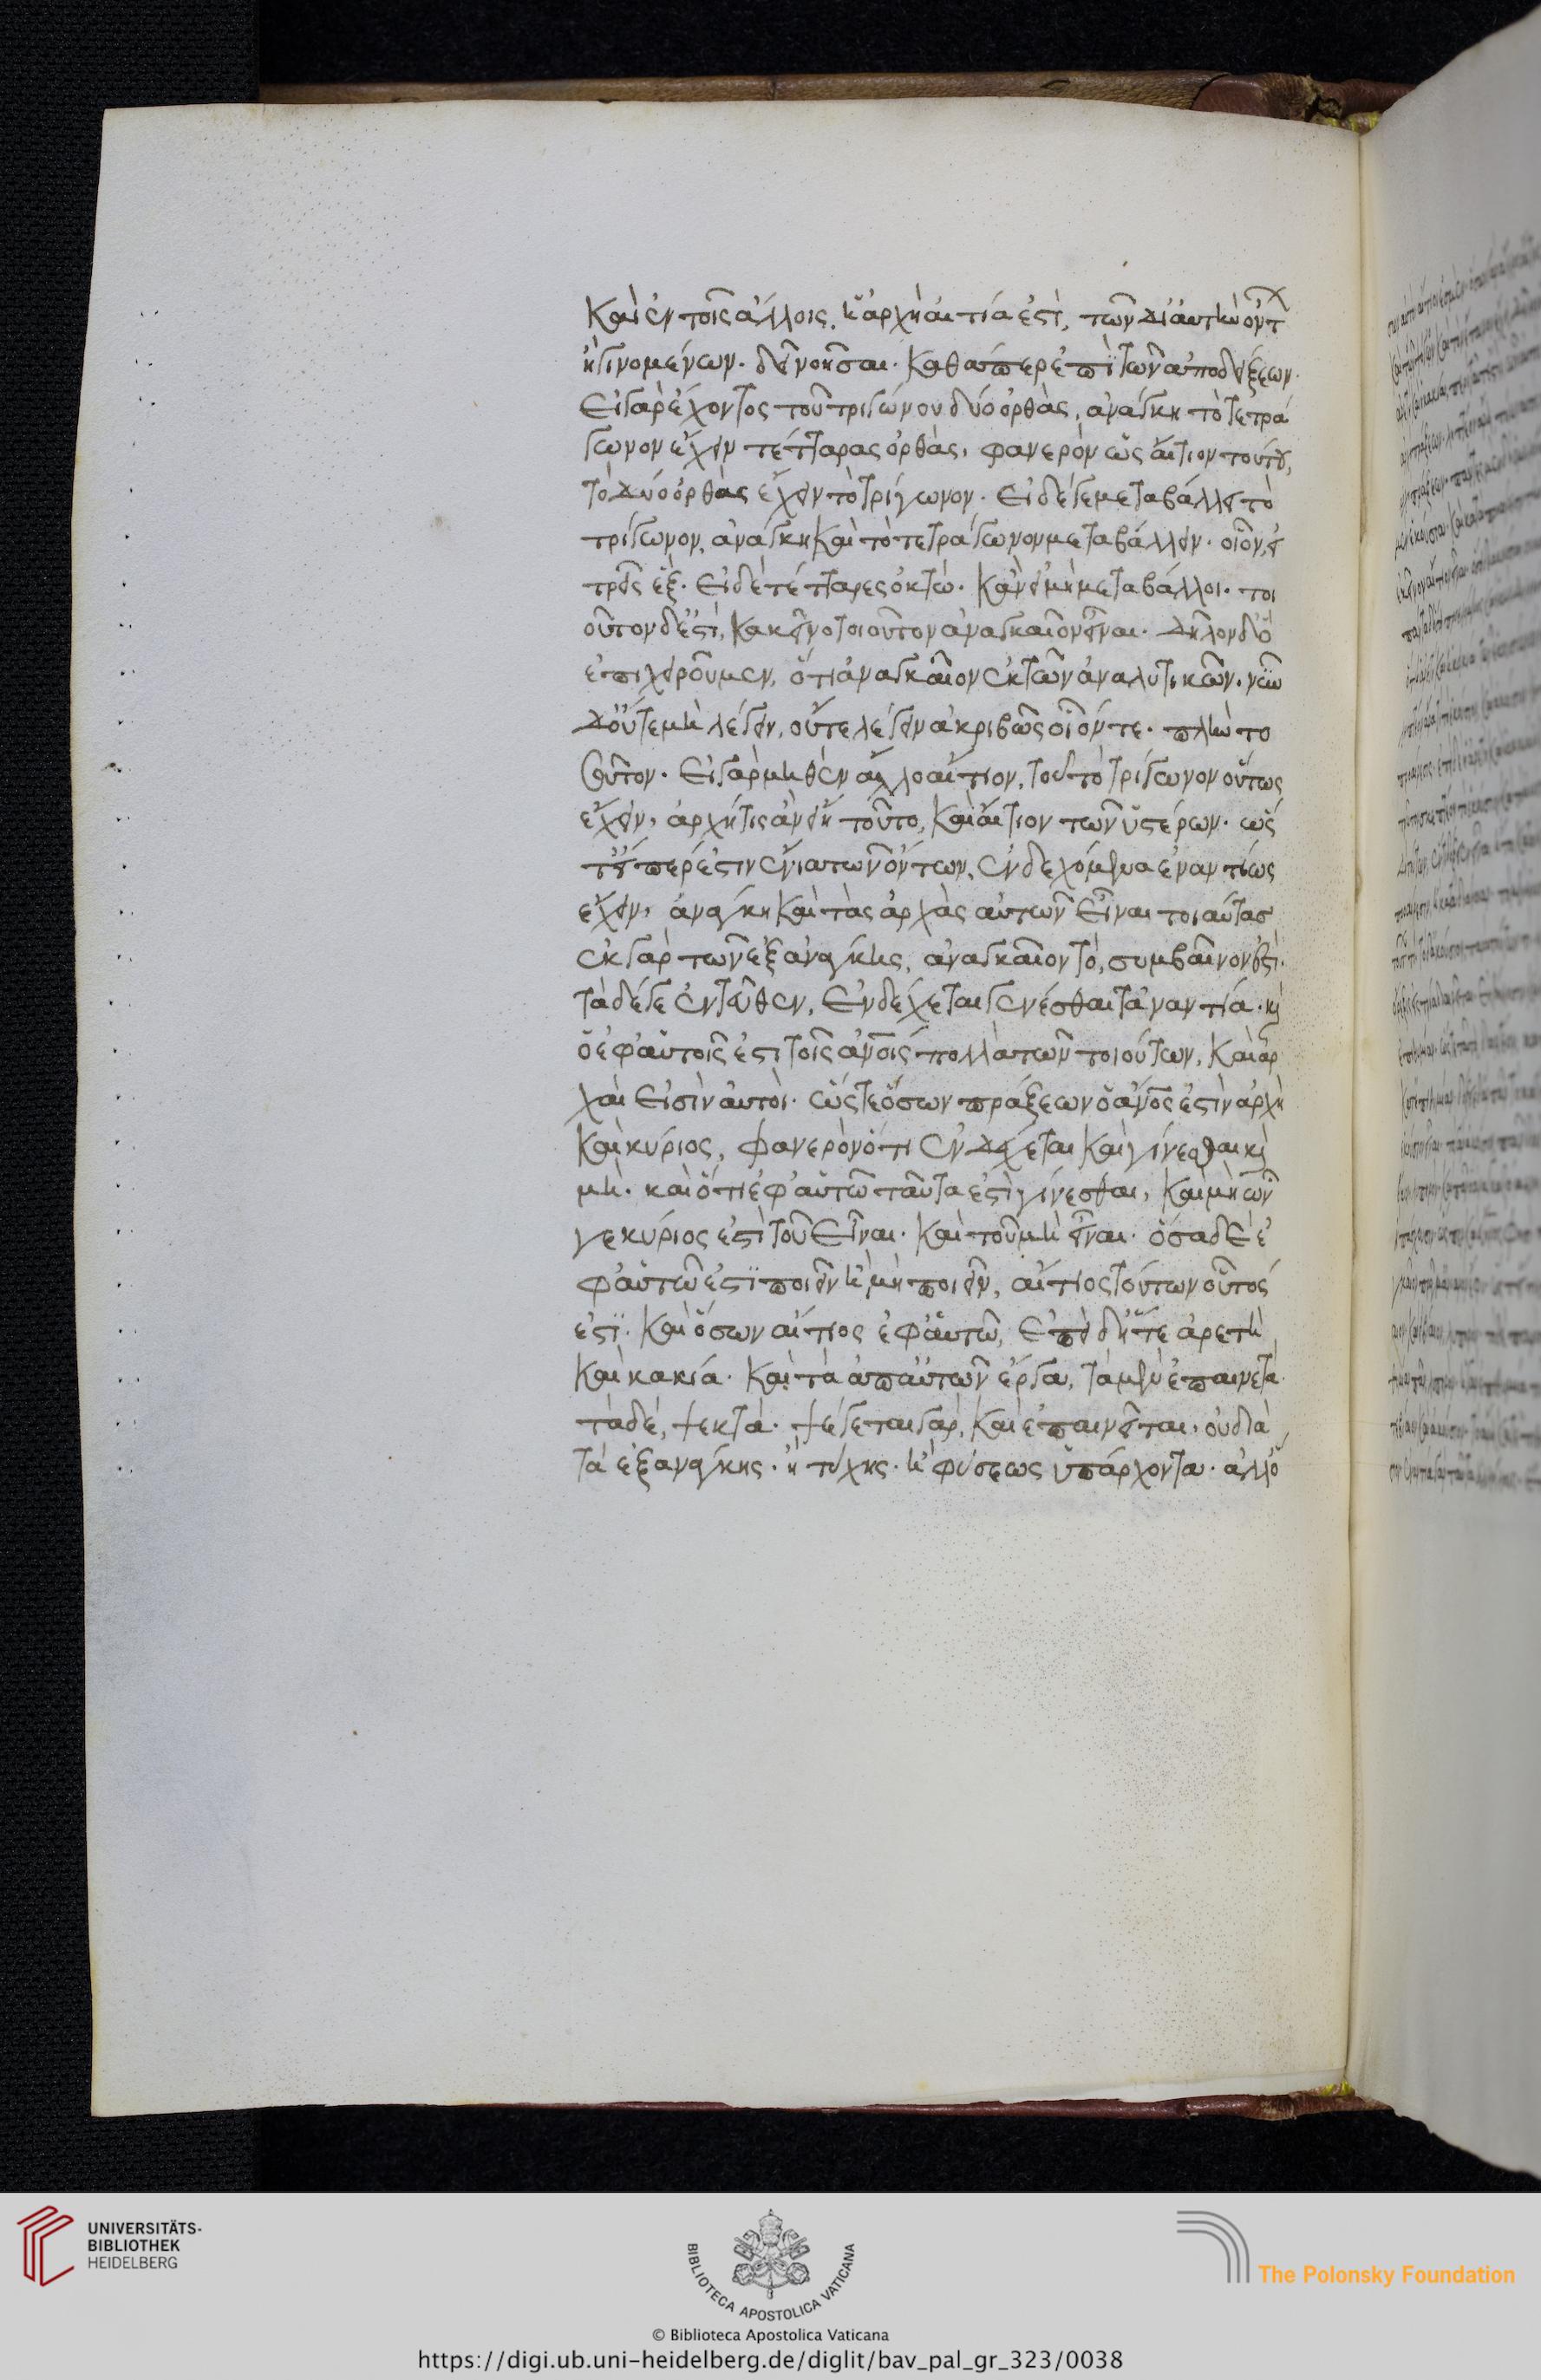 Καὶ ἐν τοῖς ἄλλοις, ἡ ἀρχὴ αἰτία ἐστὶ, τῶν δι' αὐτὴν ὄντ
ἢ γινομένων. δεῖ νοῆσαι. Καθάπερ ἐπὶ τῶν ἀποδείξεων.
Εἰ γὰρ ἔχοντος τοῦ τριγώνου δύο ὀρθὰς, ἀνάγκη τὸ τετρά
γωνον ἔχειν τέτταρας ὀρθὰς, φανερὸν ὡς αἴτιον τούτου,
τὸ δύο ὀρθὰς ἔχειν τὸ τρίγωνον. Εἰ δέ γε μεταβάλλει τὸ
τρίγωνον, ἀνάγκη Καὶ τὸ τετράγωνον μεταβάλλειν. οἷον, εἰ
τρεῖς ἓξ. Εἰ δὲ τέτταρες ὀκτώ. Κἂν εἰ μὴ μεταβάλλοι. τοι
οῦτον δ' ἐστὶ, κακεῖνο τοιοῦτον ἀναγκαῖον εἶναι. Δῆλον δ' ὃ
ἐπιχειροῦμεν, ὅτι ἀναγκαῖον ἐκ τῶν ἀναλυτικῶν. νῦν
δ' οὔτε μὴ λέγειν, οὔτε λέγειν ἀκριβῶς οἷόν τε. πλὴν το
σοῦτον. Εἰ γὰρ μηθὲν ἄλλο αἴτιον, τοῦ τὸ τρίγωνον οὕτως
ἔχειν, ἀρχή τις ἂν εἴη τοῦτο, Καὶ αἴτιον τῶν ὑστέρων. ὥς
τ' εἴπερ ἐστὶν ἔνια τῶν ὄντων, ἐνδεχόμενα ἐναντίως
ἔχειν, ἀνάγκη Καὶ τὰς ἀρχὰς αὐτῶν Εἶναι τοιαύτας
ἐκ γὰρ τῶν ἐξ ἀνάγκης, ἀναγκαῖον τὸ, συμβαῖνον ἐστὶ.
τὰ δέ γε ἐντεῦθεν, Ἐνδέχεται γενέσθαι τἀναντία. καὶ
ὃ ἐφ' αὑτοῖς ἐστι τοῖς ἀνοις πολλὰ τῶν τοιούτων, Καὶ ἀρ
χαὶ Εἰσὶν αὐτοὶ. ὥς τε ὅσων πράξεων ὁ ἄνος ἐστὶν ἀρχὴ
Καὶ κύριος, φανερὸν ὅτι ἐνδέχεται Καὶ γίνεσθαι καὶ
μὴ. καὶ ὅτι ἐφ' αὑτῶ ταῦτα ἐστὶ γίνεσθαι, Καὶ μὴ ὧν
γε κύριος ἐστὶ τοῦ Εἶναι. Καὶ τοῦ μὴ εἶναι. ὅσα δ' ἐ
φ' αὑτῶ ἐστὶ ποιεῖν ἢ μὴ ποιεῖν, αἴτιος τούτων οὗτός
ἐστὶ. Καὶ ὅσων αἴτιος ἐφ' αὑτῶ, Ἐπεὶ δ' ἥτε ἀρετὴ
Καὶ κακία. Καὶ τὰ ἀπ' αὐτῶν ἔργα, τὰ μὲν ἐπαινετὰ.
τὰ δέ, ψεκτά. ψέγεται γὰρ, Καὶ ἐπαινεῖται, οὐ διὰ
τὰ ἐξ ἀνάγκης. ἢ τύχης. ἢ φύσεως ὑπάρχοντα. ἀλλ' ὅ
UNIVERSITÄTS-
BIBLIOTHEK
HEIDELBERG
BIBLIOTECA APOSTOLICA VATICANA
The Polonsky Foundation
© Biblioteca Apostolica Vaticana
https://digi.ub.uni-heidelberg.de/diglit/bav_pal_gr_323/0038